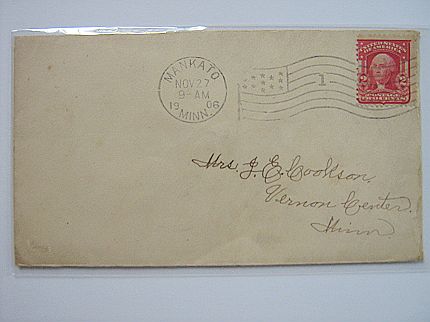 MANKATO
NOV 27
9-AM
19 06
MINN.
1
UNITED STATES
OF AMERICA
2 2
POSTAGE
TWO CENTS
Mrs. J. E. Cookson,
Vernon Center,
Minn